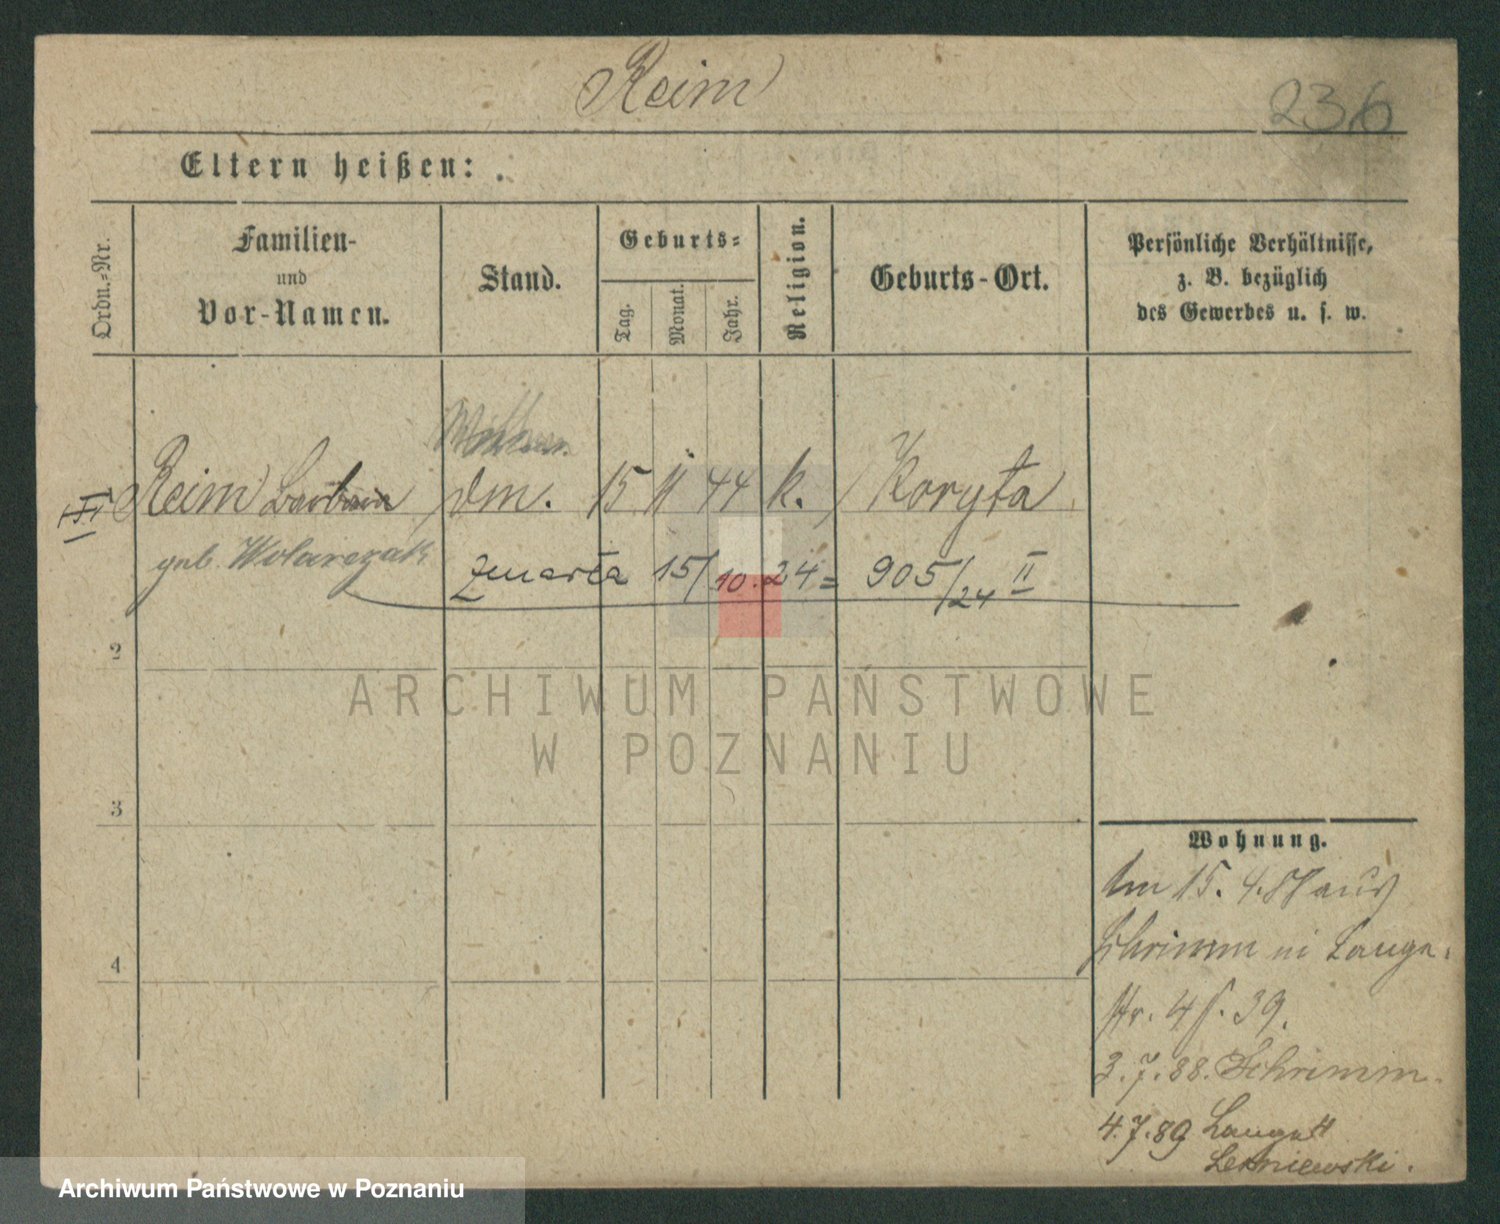 Reim
236
Eltern heißen:
Ordn.-Nr.
Familien-
und
Vor-Namen.
Stand.
Geburts-
Tag.
Monat.
Jahr.
Religion.
Geburts-Ort.
Persönliche Verhältnisse,
z. B. bezüglich
des Gewerbes u. s. w.
Reim Barbara
15 11 44 k. Koryta
geb. Wolarczak
zmarła 15/10.24= 905/24 II
2
3
4
Wohnung.
Am 15. 4. aus
Schrimm in Lange-
str. 4 39.
3.7.88. Schrimm.
4.7.89 Lange 4
ARCHIWUM PAŃSTWOWE
W POZNANIU
Archiwum Państwowe w Poznaniu